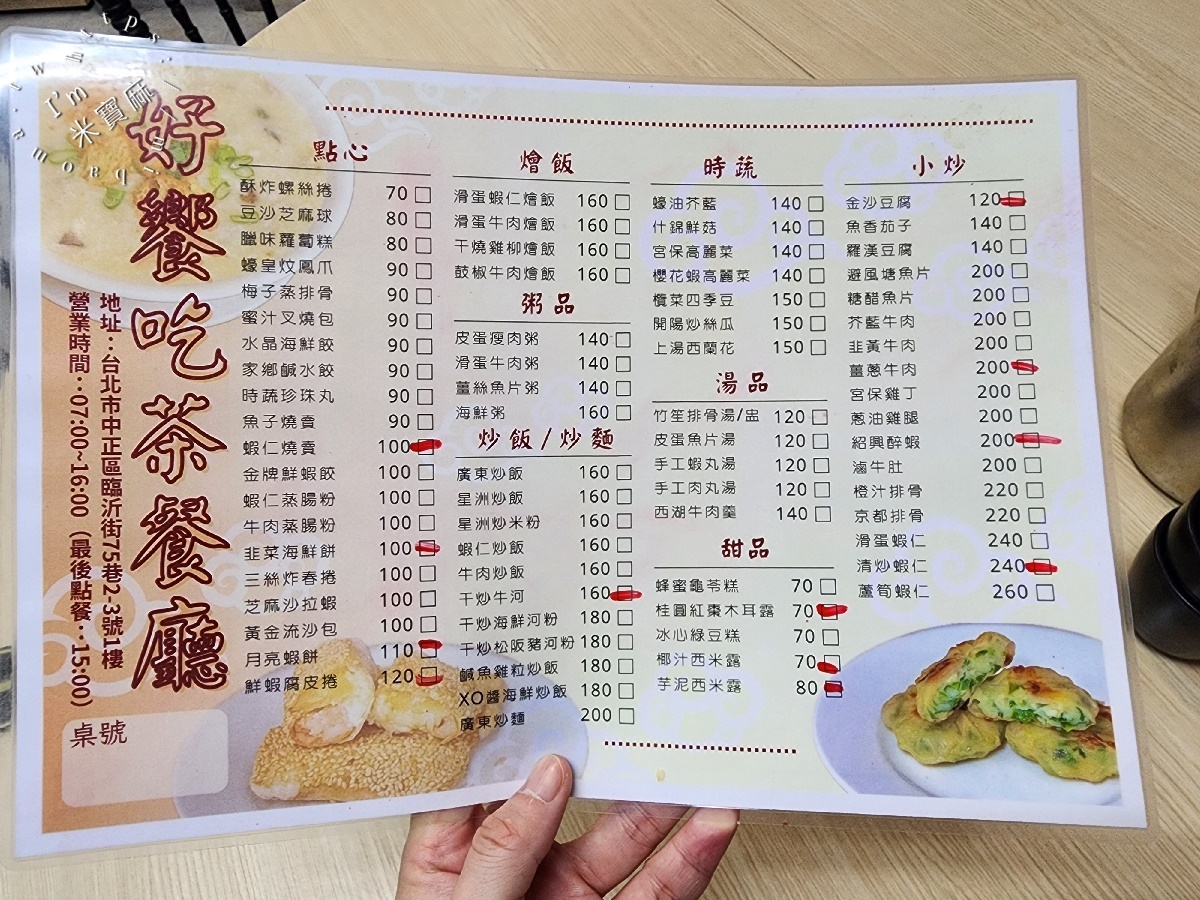 米寶麻
I'm
好饗吃茶餐廳
地址：台北市中正區臨沂街75巷2-3號1樓
營業時間：07:00~16:00（最後點餐：15:00）
桌號
點心
酥炸螺絲捲 70
豆沙芝麻球 80
臘味蘿蔔糕 80
蠔皇炆鳳爪 90
梅子蒸排骨 90
蜜汁叉燒包 90
水晶海鮮餃 90
家鄉鹹水餃 90
時蔬珍珠丸 90
魚子燒賣 90
蝦仁燒賣 100
金牌鮮蝦餃 100
蝦仁蒸腸粉 100
牛肉蒸腸粉 100
韭菜海鮮餅 100
三絲炸春捲 100
芝麻沙拉蝦 100
黃金流沙包 100
月亮蝦餅 110
鮮蝦腐皮捲 120
燴飯
滑蛋蝦仁燴飯 160
滑蛋牛肉燴飯 160
干燒雞柳燴飯 160
鼓椒牛肉燴飯 160
粥品
皮蛋瘦肉粥 140
滑蛋牛肉粥 140
薑絲魚片粥 140
海鮮粥 160
炒飯/炒麵
廣東炒飯 160
星洲炒飯 160
星洲炒米粉 160
蝦仁炒飯 160
牛肉炒飯 160
干炒牛河 160
干炒海鮮河粉 180
干炒松阪豬河粉 180
鹹魚雞粒炒飯 180
XO醬海鮮炒飯 180
廣東炒麵 200
時蔬
蠔油芥藍 140
什錦鮮菇 140
宮保高麗菜 140
櫻花蝦高麗菜 140
欖菜四季豆 150
開陽炒絲瓜 150
上湯西蘭花 150
湯品
竹笙排骨湯/盅 120
皮蛋魚片湯 120
手工蝦丸湯 120
手工肉丸湯 120
西湖牛肉羹 140
甜品
蜂蜜龜苓糕 70
桂圓紅棗木耳露 70
冰心綠豆糕 70
椰汁西米露 70
芋泥西米露 80
小炒
金沙豆腐 120
魚香茄子 140
羅漢豆腐 140
避風塘魚片 200
糖醋魚片 200
芥藍牛肉 200
韭黃牛肉 200
薑蔥牛肉 200
宮保雞丁 200
蔥油雞腿 200
紹興醉蝦 200
滷牛肚 200
橙汁排骨 220
京都排骨 220
滑蛋蝦仁 240
清炒蝦仁 240
蘆筍蝦仁 260